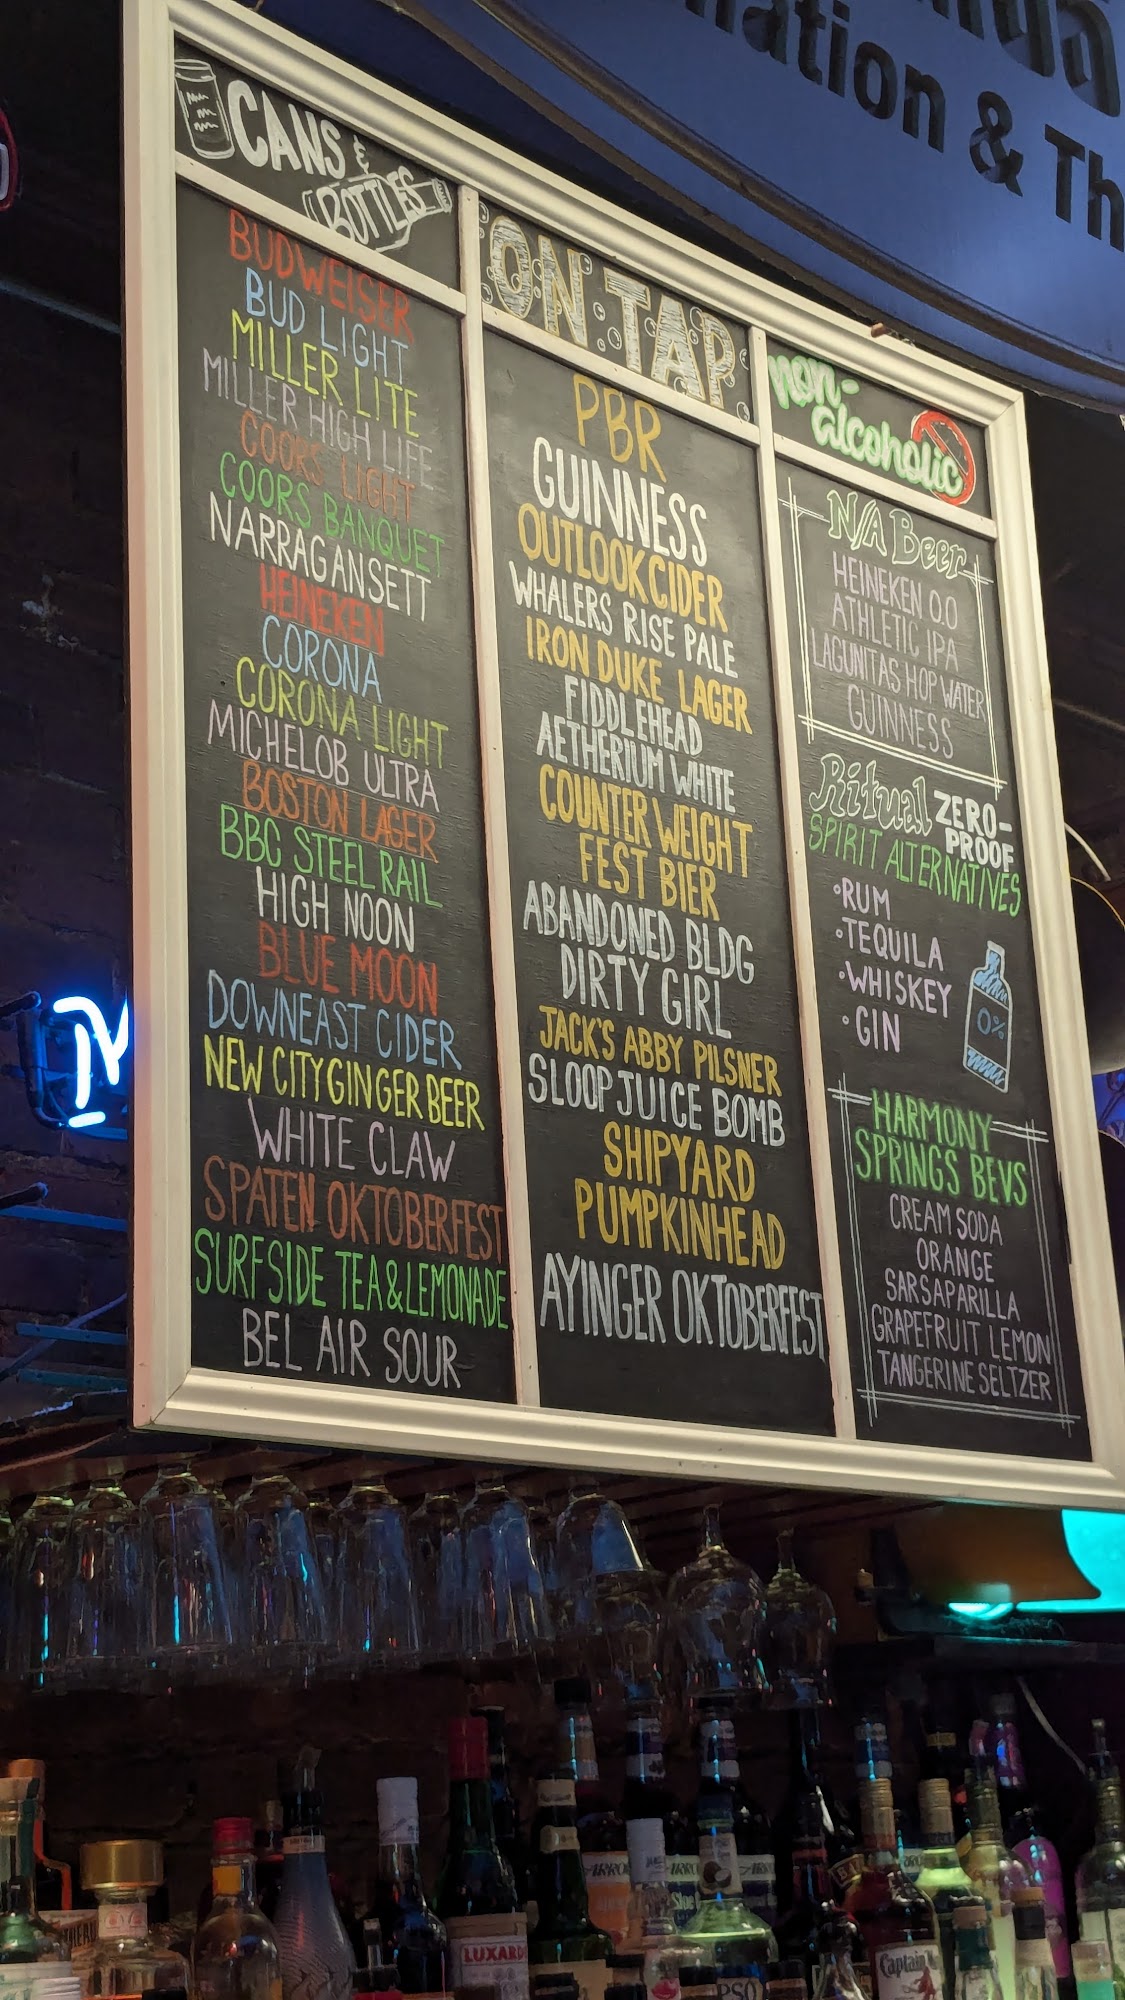 CANS &
BOTTLES
BUDWEISER
BUD LIGHT
MILLER LITE
MILLER HIGH LIFE
COORS LIGHT
COORS BANQUET
NARRAGANSETT
HEINEKEN
CORONA
CORONA LIGHT
MICHELOB ULTRA
BOSTON LAGER
BBC STEEL RAIL
HIGH NOON
BLUE MOON
DOWNEAST CIDER
NEW CITY GINGER BEER
WHITE CLAW
SPATEN OKTOBERFEST
SURFSIDE TEA & LEMONADE
BEL AIR SOUR
ON TAP
PBR
GUINNESS
OUTLOOK CIDER
WHALERS RISE PALE
IRON DUKE LAGER
FIDDLEHEAD
AETHERIUM WHITE
COUNTER WEIGHT
FEST BIER
ABANDONED BLDG
DIRTY GIRL
JACK'S ABBY PILSNER
SLOOP JUICE BOMB
SHIPYARD
PUMPKINHEAD
AYINGER OKTOBERFEST
non-
alcoholic
N/A Beer
HEINEKEN 0.0
ATHLETIC IPA
LAGUNITAS HOP WATER
GUINNESS
Ritual ZERO-
PROOF
SPIRIT ALTERNATIVES
• RUM
• TEQUILA
• WHISKEY
• GIN
0%
HARMONY
SPRINGS BEVS
CREAM SODA
ORANGE
SARSAPARILLA
GRAPEFRUIT LEMON
TANGERINE SELTZER
nation & Th
LUXARD
Captain